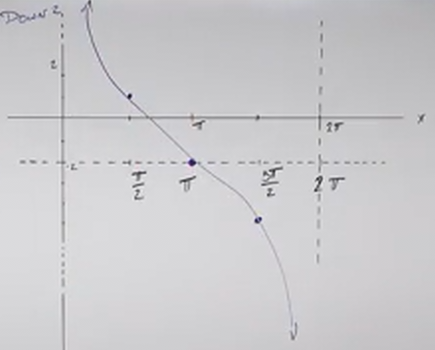 DOWN 2
2
π x
2π
-2
π/2 π 3π/2 2π